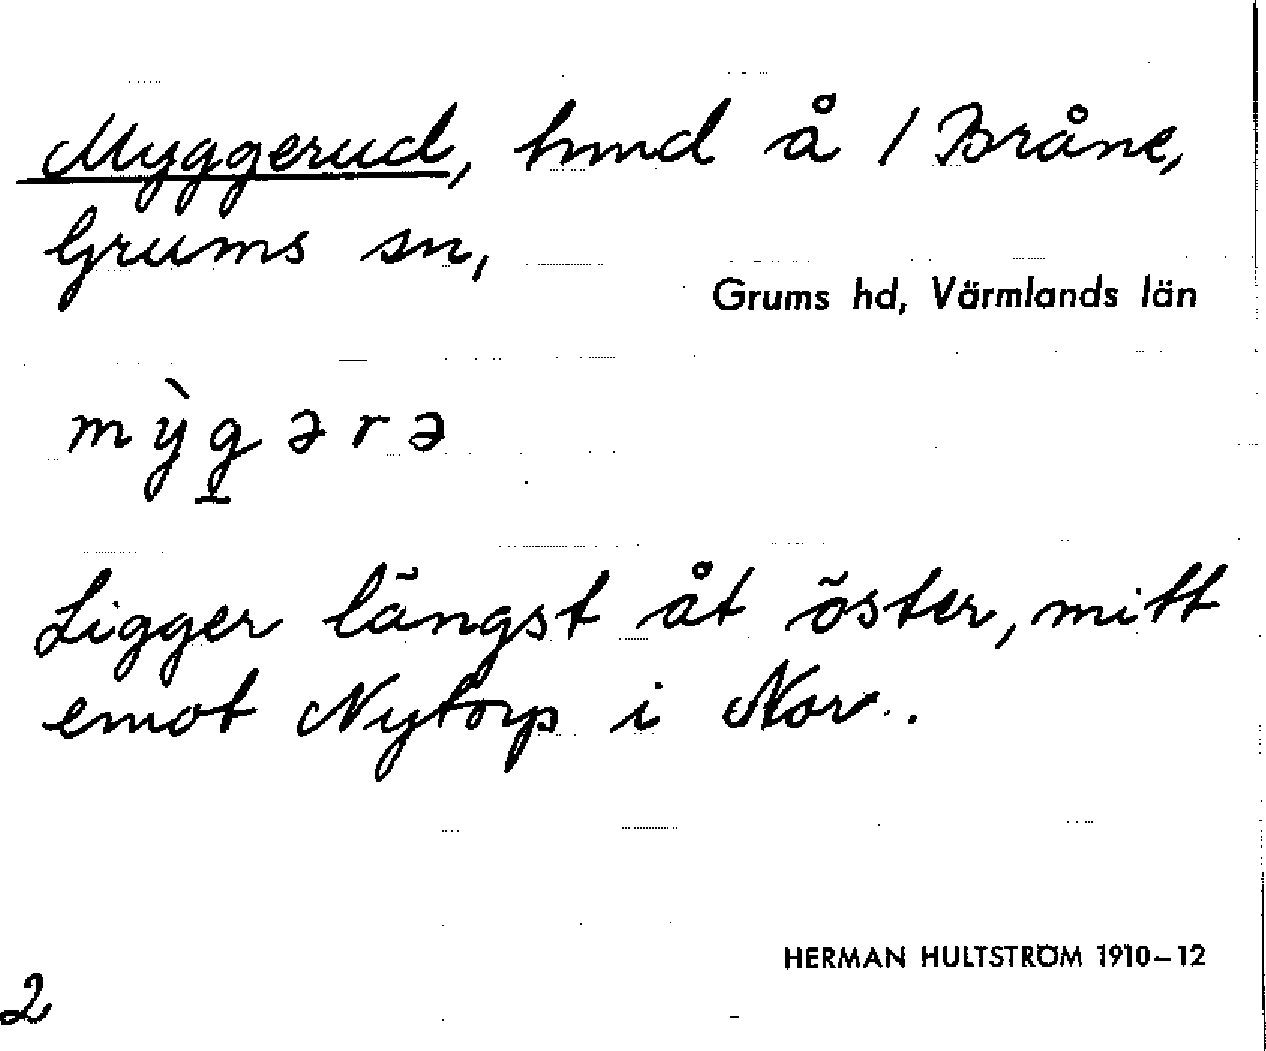 Myggerud, hmd å 1 Bråne,
Grums sn,
Grums hd, Värmlands län
mỳg̲ərə
Ligger längst åt öster, mitt
emot Nytorp i Nor.
HERMAN HULTSTRÖM 1910–12
2